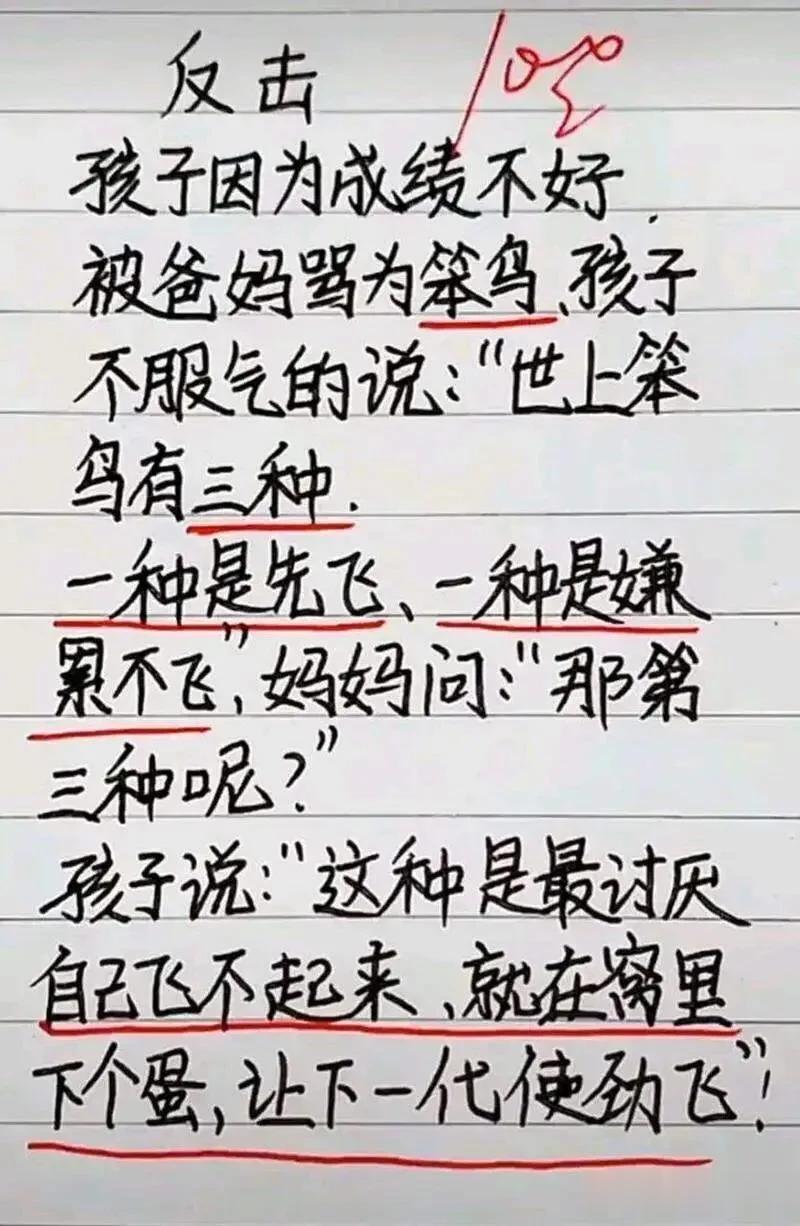 反击
孩子因为成绩不好.
被爸妈骂为笨鸟、孩子
不服气的说:“世上笨
鸟有三种.
一种是先飞、一种是嫌
累不飞”,妈妈问:“那第
三种呢?”
孩子说:“这种是最讨厌
自己飞不起来、就在窝里
下个蛋,让下一代使劲飞”!